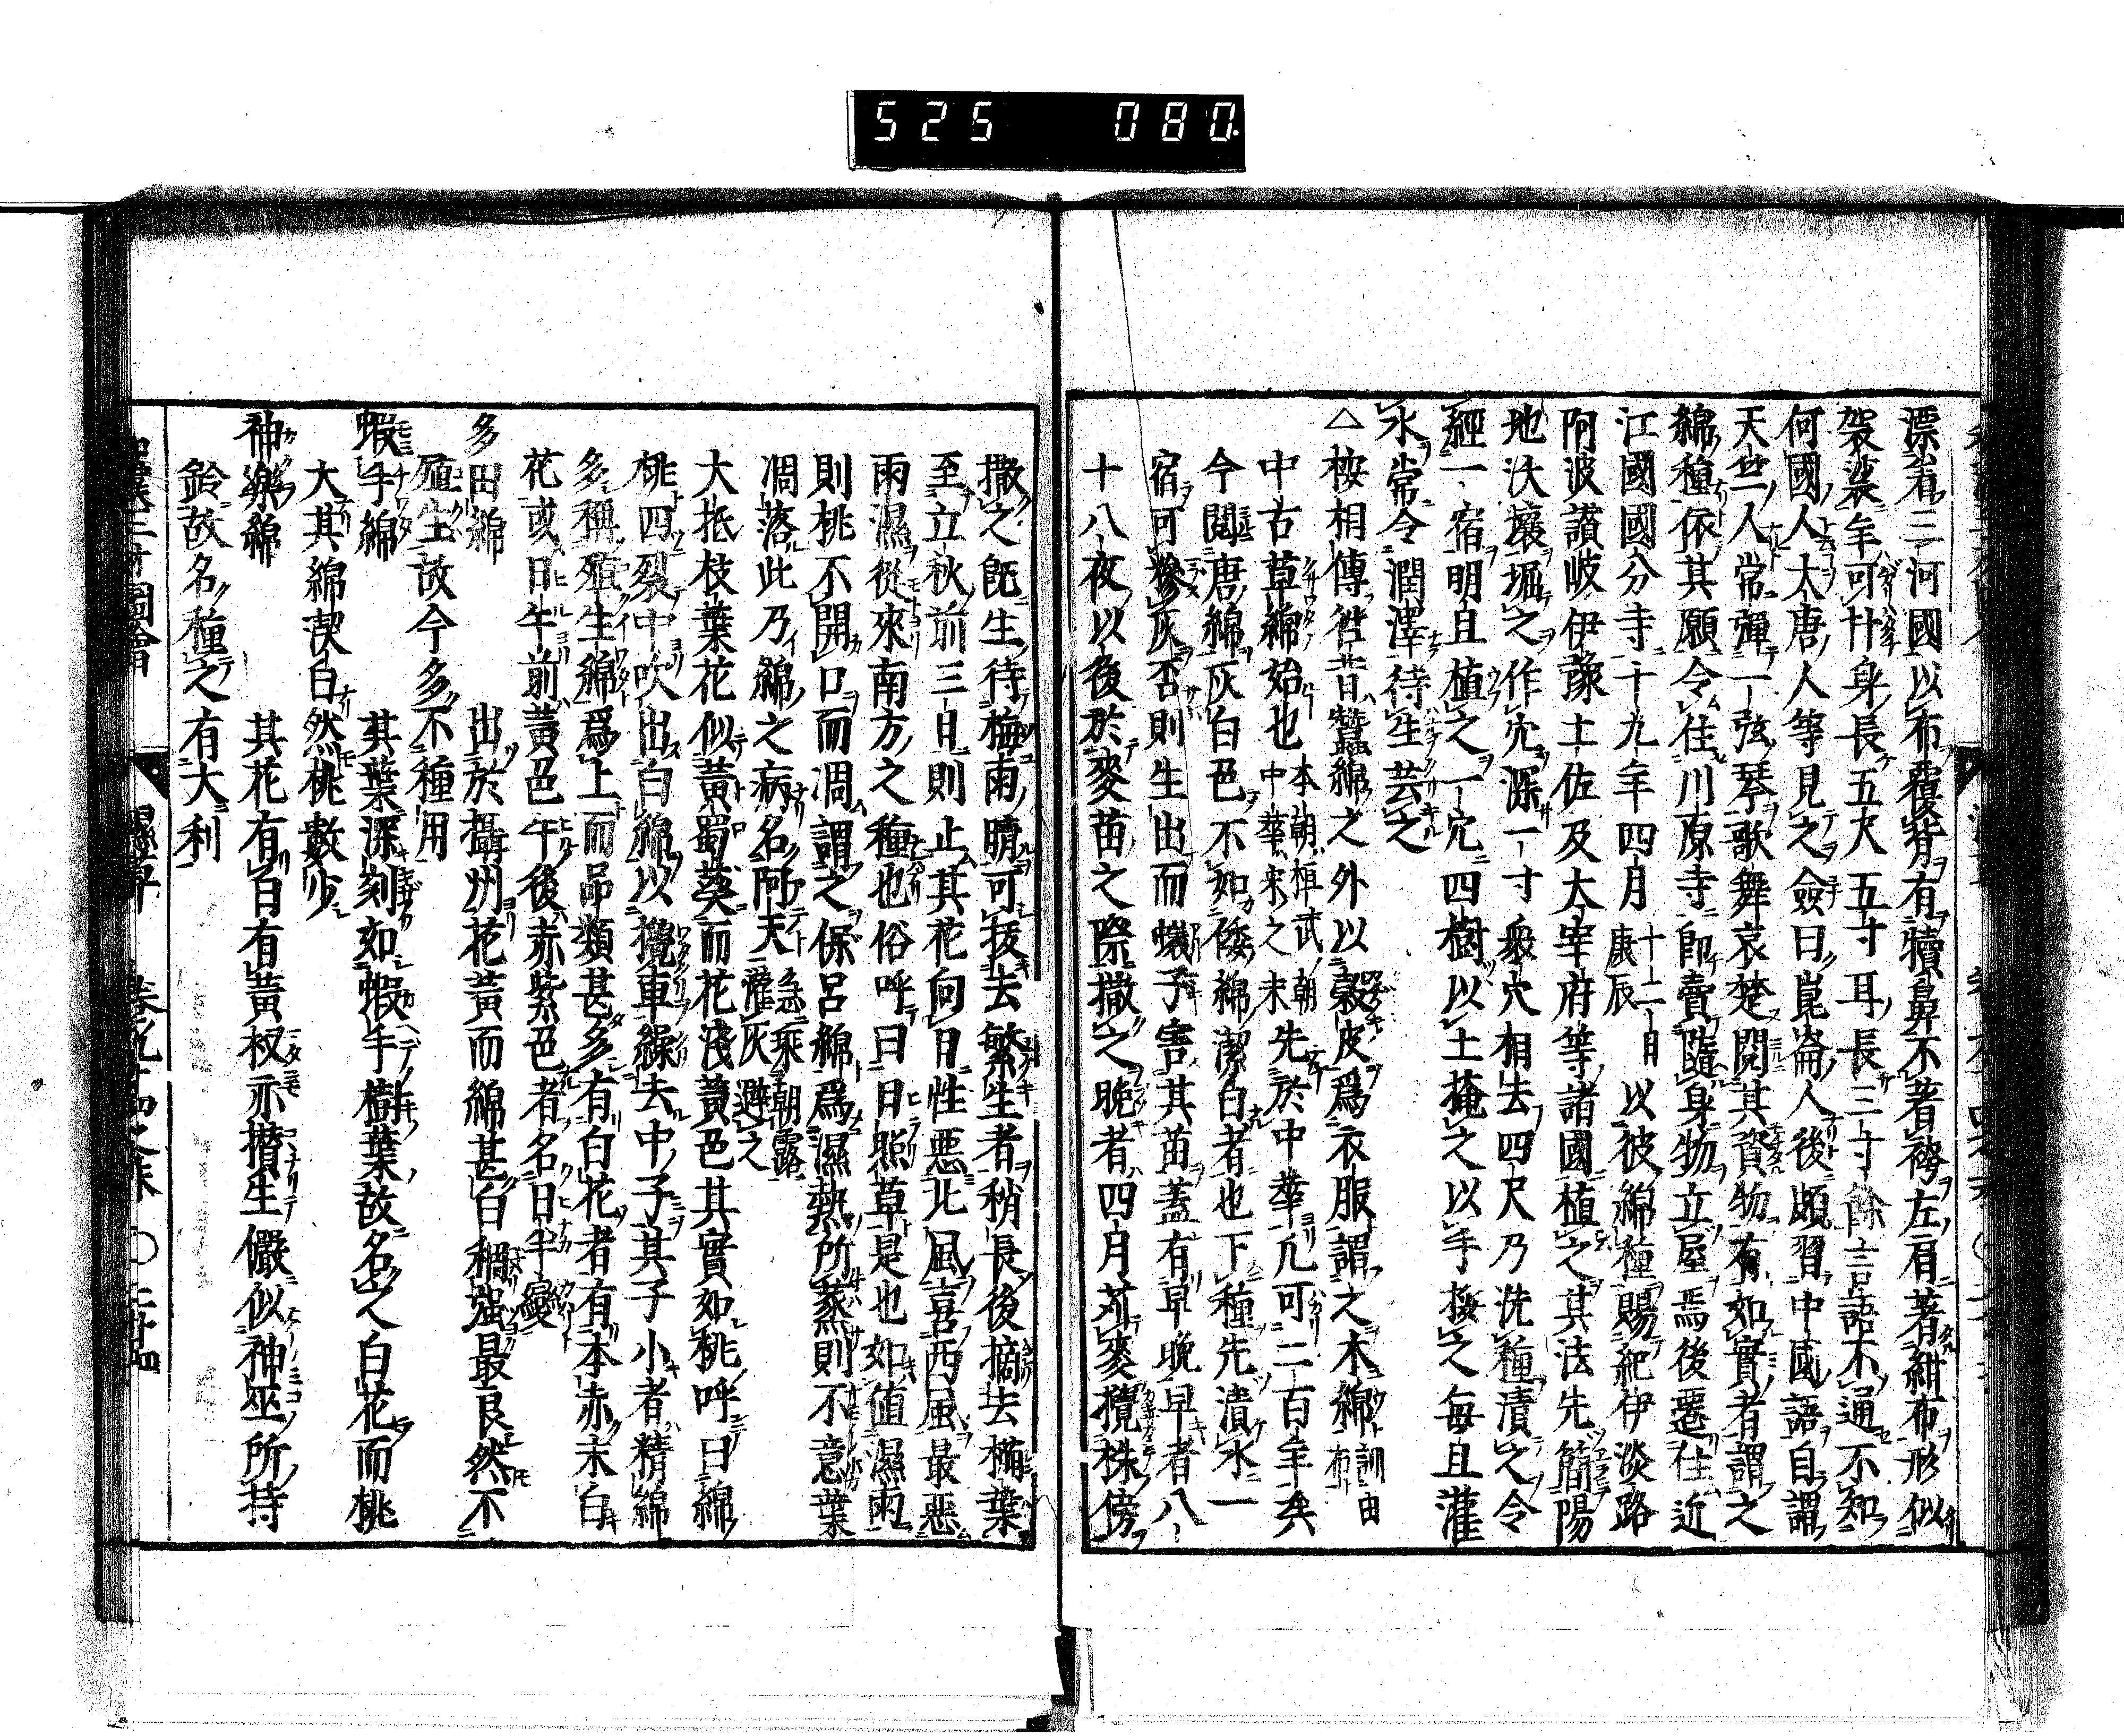 525 080.
漂着三河國以布覆背有犢鼻不著袴左肩著紺布形似
袈裟年可廿身長五尺五寸耳長三寸餘言語不通不知
何國人大唐人等見之僉曰崑崙人後頗習中國語自謂
天竺人常彈一弦琴歌舞哀楚閲其資物有如實者謂之
綿種依其願令住川原寺即賣隨身物立屋焉後遷住近
江國國分寺十九年四月十二月庚辰以彼綿種賜紀伊淡路
阿波讃岐伊豫土佐及大宰府等諸國植之其法先簡陽
地沃壤堀之作穴深一寸衆穴相去四尺乃洗種漬之令
經一宿明旦植之一穴四樹以土掩之以手按之毎旦灌
水常令潤澤待生芸之
△按相傳徃昔蠶綿之外以穀皮爲衣服謂之木綿訓由布
中古草綿始也本朝桓武朝中華宋之末先於中華凡可二百年矣
今閲唐綿灰白色不如倭綿潔白者也下種先漬水一
宿可糝灰否則生出而蟻子害其苗蓋有早晩早者八
十八夜以後於麥苗之際撒之晩者四月苅麥攪株傍
撒之既生待梅雨晴可拔去繁生者稍長後摘去椨葉
至立秋前三日則止其花向日性惡北風喜西風最惡
雨濕從來南方之種也俗呼曰日照草是也如値濕雨
則桃不開口而凋謂之保呂綿爲濕熱所蒸則不意葉
凋落此乃綿之病名阿天急乘朝露灌灰避之
大抵枝葉花似黃蜀葵而花淺黃色其實如桃呼曰綿
桃四裂中吹出白綿以攪車繰去中子其子小者精綿
多稱殖生綿爲上而品類甚多有白花者有本赤末白
花或日午前黃色午後赤紫色者名日午變
多田綿 出於攝州花黃而綿甚白稠強最良然不
殖生故今多不種用
蝦手綿 其葉深刻如蝦手樹葉故名之白花而桃
大其綿潔白然桃數少
神樂綿 其花有白有黃杈亦攢生儼似神巫所持
鈴故名種之有大利